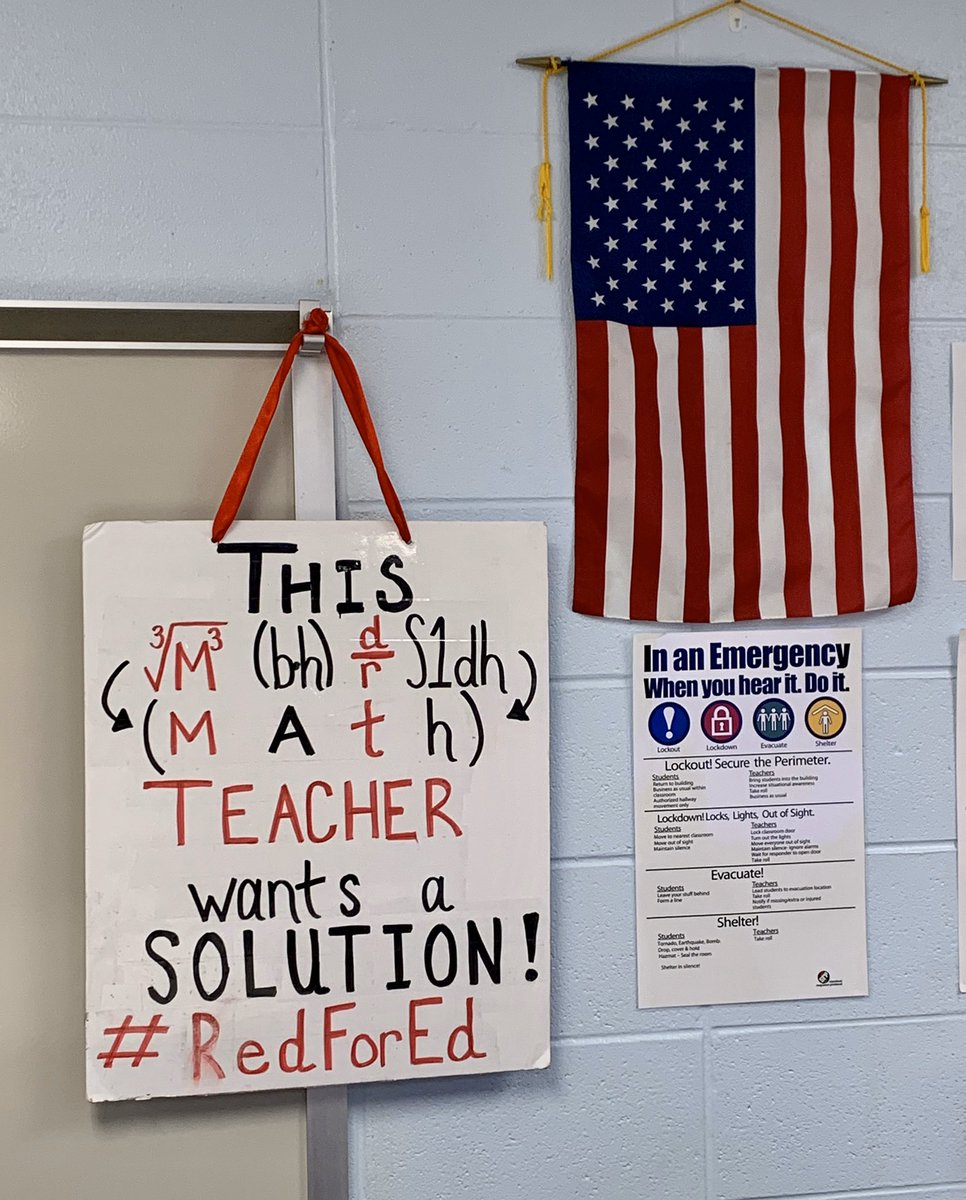 THIS
∛M³ (b·h) d/r ∫1dh
(M A t h)
TEACHER
wants a
SOLUTION!
#RedForEd
In an Emergency
When you hear it. Do it.
Lockout Lockdown Evacuate Shelter
Lockout! Secure the Perimeter.
Students
Return to building
Business as usual within
classroom
Authorized hallway
movement only
Teachers
Bring students into the building
Increase situational awareness
Take roll
Business as usual
Lockdown! Locks, Lights, Out of Sight.
Students
Move to nearest classroom
Move out of sight
Maintain silence
Teachers
Lock classroom door
Turn out the lights
Move everyone out of sight
Maintain silence- Ignore alarms
Wait for responder to open door
Take roll
Evacuate!
Students
Leave your stuff behind
Form a line
Teachers
Lead students to evacuation location
Take roll
Notify if missing/extra or injured
students
Shelter!
Students
Tornado, Earthquake, Bomb.
Drop, cover & hold
Hazmat - Seal the room
Shelter in silence!
Teachers
Take roll